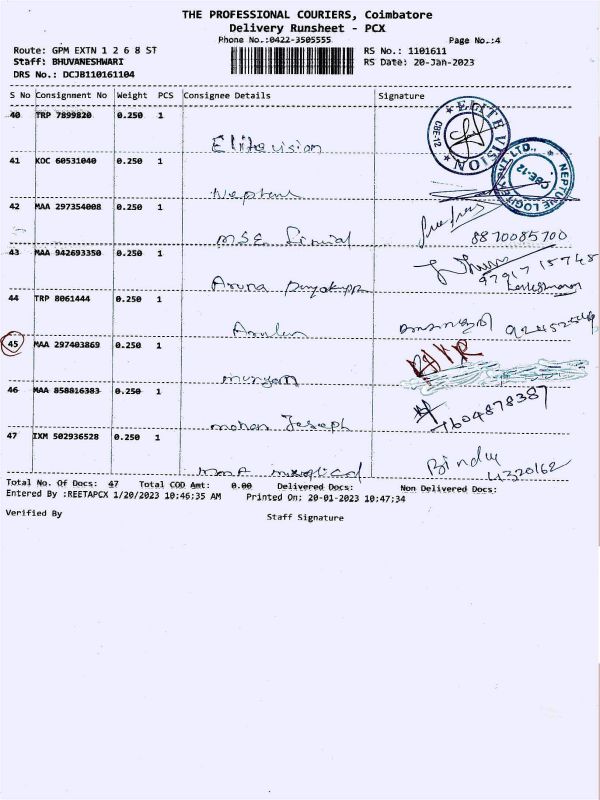 THE PROFESSIONAL COURIERS, Coimbatore
Delivery Runsheet - PCX
Phone No.:0422-3505555
Page No.:4
Route: GPM EXTN 1 2 6 8 ST
RS No.: 1101611
Staff: BHUVANESHWARI
RS Date: 20-Jan-2023
DRS No.: DCJB110161104
S No Consignment No Weight PCS Consignee Details Signature
40 TRP 7899820 0.250 1
Elite vision
ELITE VISION CBE-12
41 KOC 60531040 0.250 1
Neptune
NEPTUNE PVT LTD., CBE-12
42 MAA 297354008 0.250 1
MSE
8870085700
43 MAA 942693350 0.250 1
Aruna
9791715748
44 TRP 8061444 0.250 1
45 MAA 297403869 0.250 1
murgan
46 MAA 858816383 0.250 1
mohan Joseph
9604878387
47 IXM 502936528 0.250 1
Bindu
4320162
Total No. Of Docs: 47 Total COD Amt: 0.00 Delivered Docs: Non Delivered Docs:
Entered By :REETAPCX 1/20/2023 10:46:35 AM Printed On; 20-01-2023 10:47:34
Verified By
Staff Signature